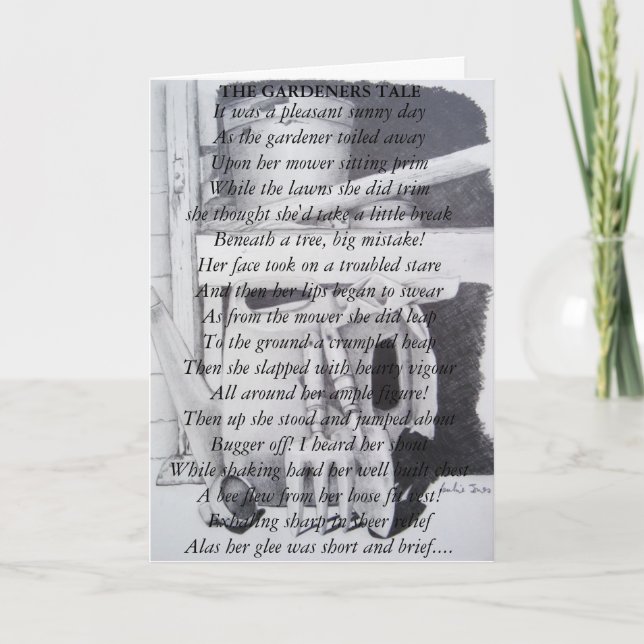 THE GARDENERS TALE
It was a pleasant sunny day
As the gardener toiled away
Upon her mower sitting prim
While the lawns she did trim
she thought she'd take a little break
Beneath a tree, big mistake!
Her face took on a troubled stare
And then her lips began to swear
As from the mower she did leap
To the ground a crumpled heap
Then she slapped with hearty vigour
All around her ample figure!
Then up she stood and jumped about
Bugger off! I heard her shout
While shaking hard her well built chest
A bee flew from her loose fit vest!
Exhaling sharp in sheer relief
Alas her glee was short and brief....